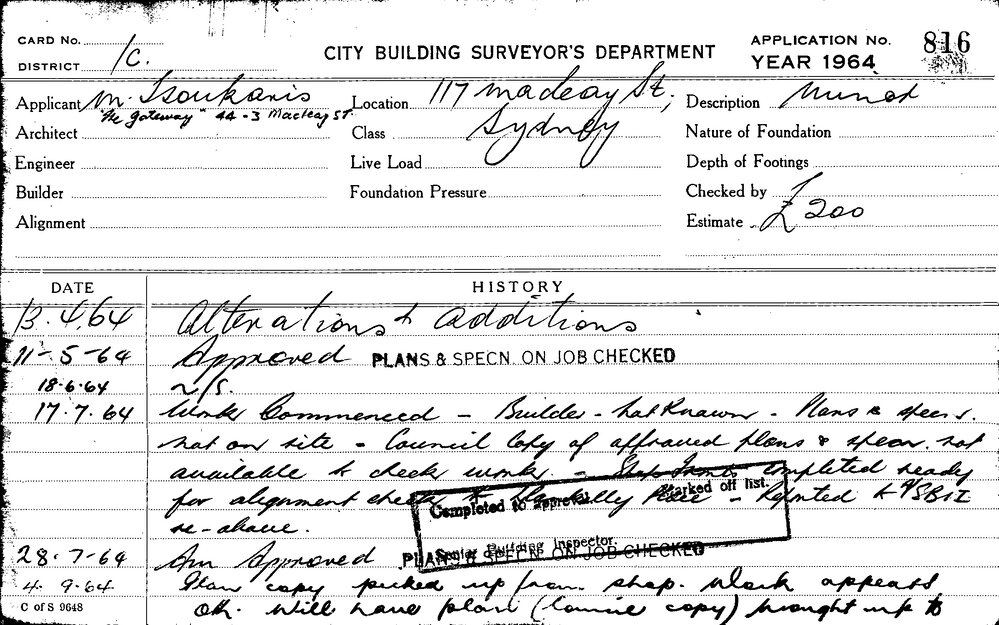 CARD No.
DISTRICT 1C.
CITY BUILDING SURVEYOR'S DEPARTMENT
APPLICATION No. 816
YEAR 1964
Applicant M. Tsoukaris
"The Gateway" 44-3 Macleay ST.
Location 117 Macleay St,
Sydney
Description Minor
Architect
Class
Nature of Foundation
Engineer
Live Load
Depth of Footings
Builder
Foundation Pressure
Checked by
Alignment
Estimate £200
DATE HISTORY
13.4.64 Alterations & additions
11-5-64 Approved PLANS & SPECN. ON JOB CHECKED
18.6.64 N/S.
17.7.64 Works Commenced - Builder - not known - Plans & specn.
not on site - Council copy of approved plans & specn. not
available to check works. - Shop Front completed ready
for alignment check - Reported to
re-above.
Completed to approval Marked off list.
Senior Building Inspector.
28.7-64 Am Approved PLANS & SPECN. ON JOB CHECKED
4.9.64 Plan copy picked up from shop. Work appears
C of S 9648
Ok. Will have plan (Council copy) brought up to